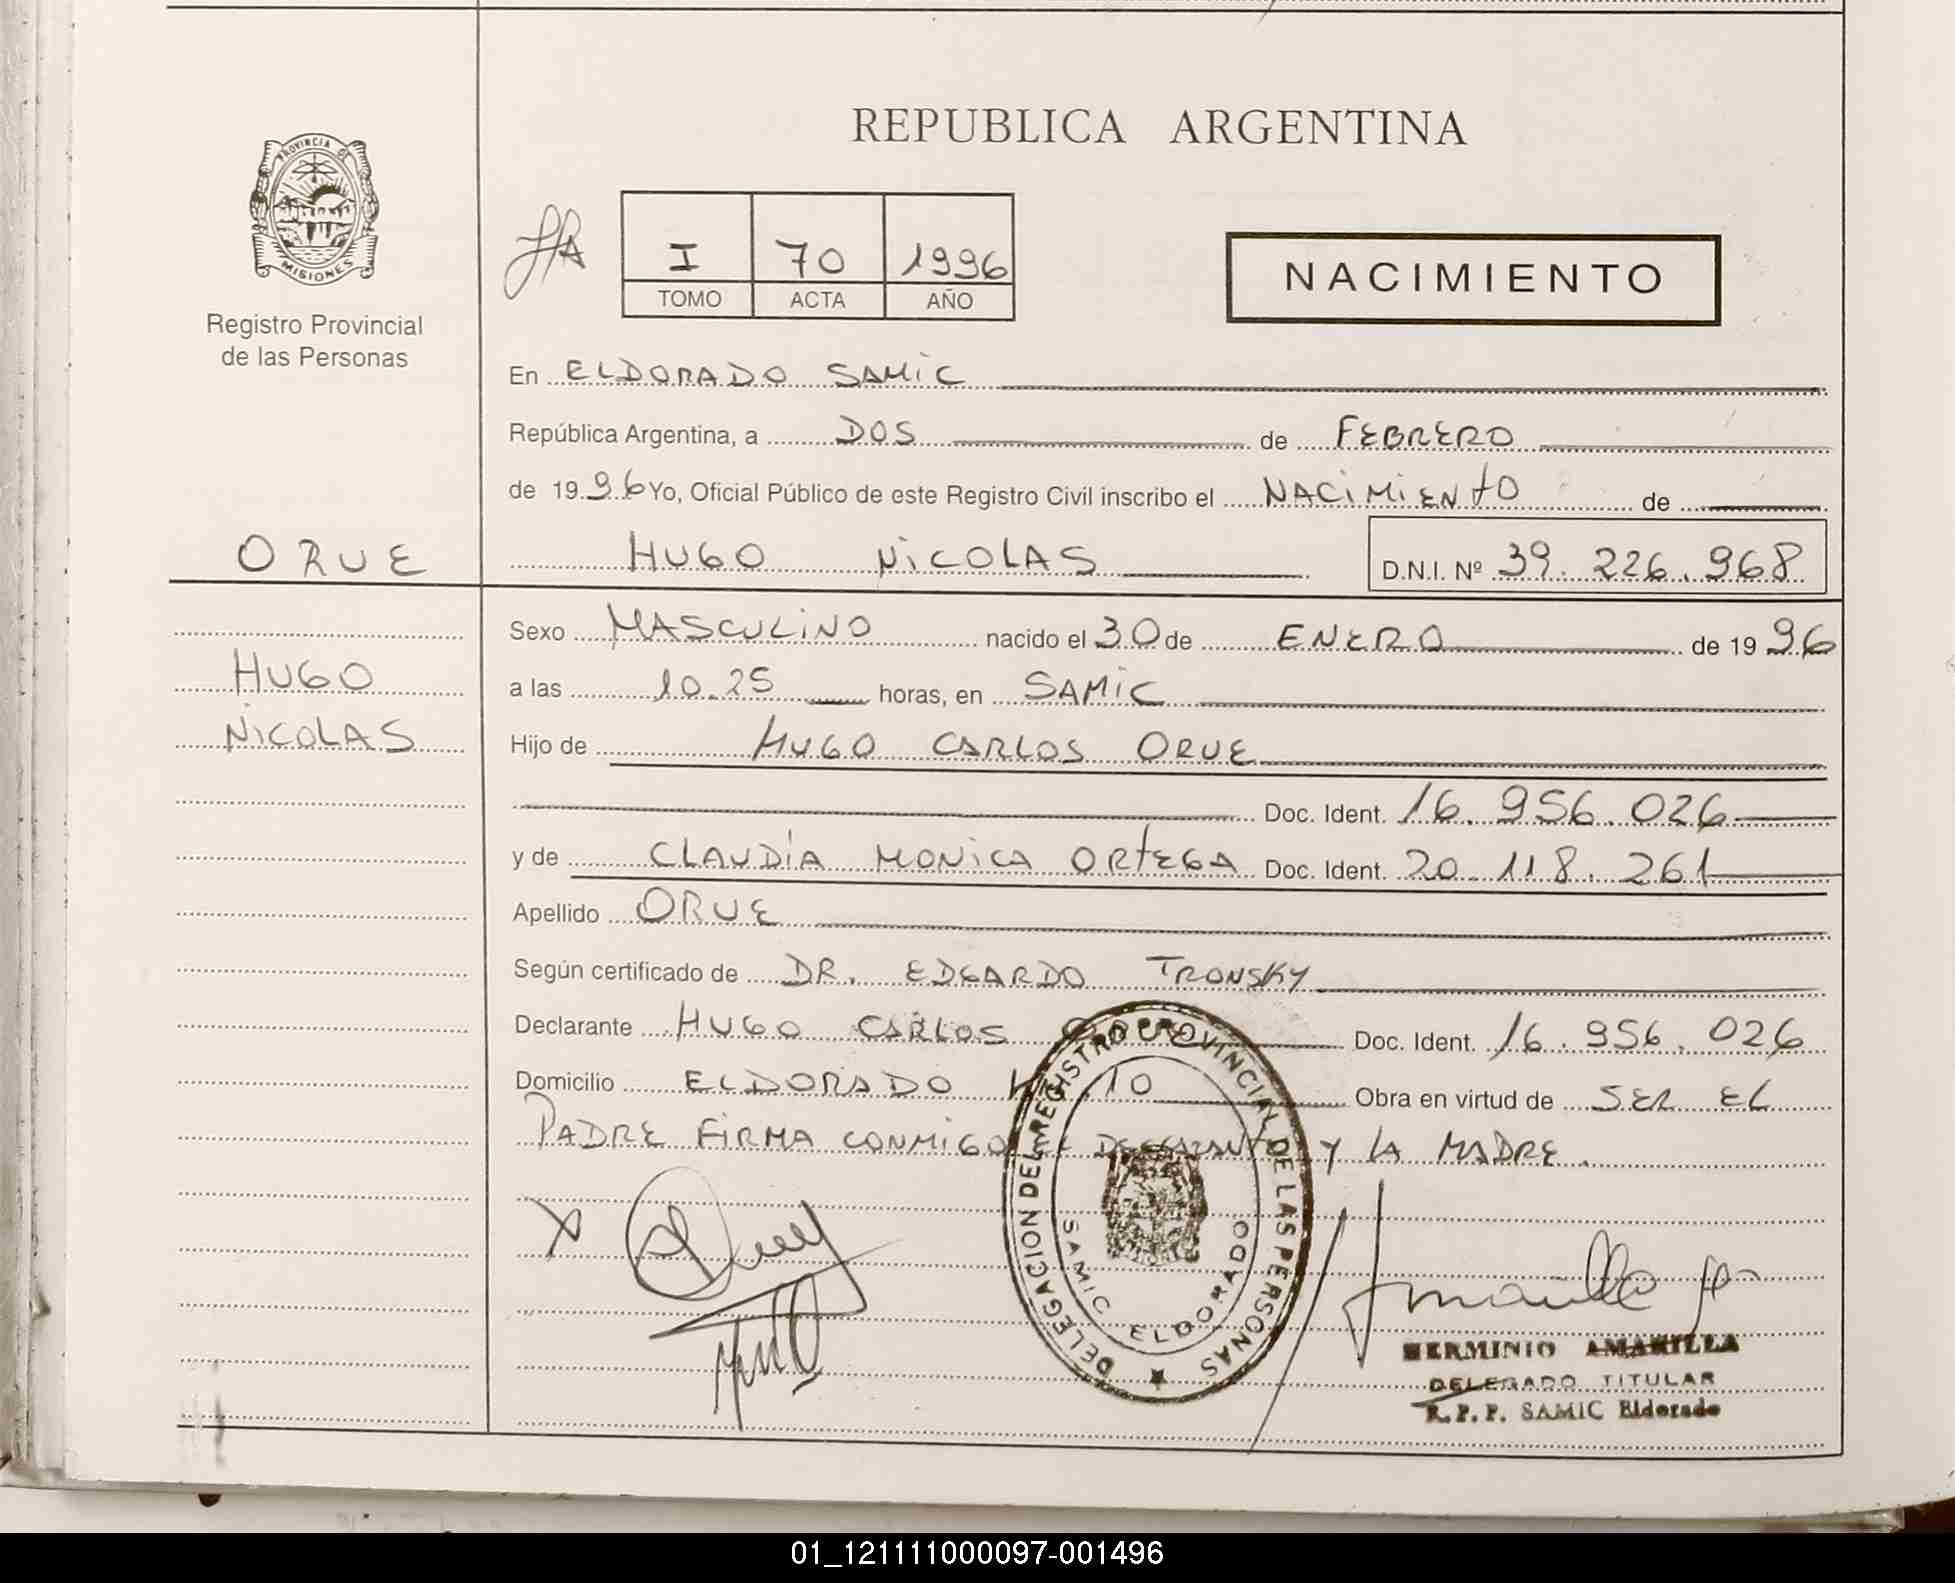 REPUBLICA ARGENTINA
PROVINCIA DE
MISIONES
Registro Provincial
de las Personas
I 70 1996
TOMO ACTA AÑO
NACIMIENTO
En ELDORADO SAMIC
República Argentina, a DOS de FEBRERO
de 1996 Yo, Oficial Público de este Registro Civil inscribo el NACIMIENTO de
ORUE
HUGO NICOLAS D.N.I. Nº 39.226.968
Sexo MASCULINO nacido el 30 de ENERO de 1996
HUGO
a las 10.25 horas, en SAMIC
NICOLAS
Hijo de HUGO CARLOS ORUE
Doc. Ident. 16.956.026
y de CLAUDIA MONICA ORTEGA Doc. Ident. 20.118.261
Apellido ORUE
Según certificado de DR. EDGARDO TRONSKY
Declarante HUGO CARLOS ORUE Doc. Ident. 16.956.026
Domicilio ELDORADO 10 Obra en virtud de SER EL
PADRE FIRMA CONMIGO Y LA MADRE.
DELEGACION DEL REGISTRO PROVINCIAL DE LAS PERSONAS
SAMIC ELDORADO
HERMINIO AMARILLA
DELEGADO TITULAR
R.P.P. SAMIC Eldorado
01_121111000097-001496